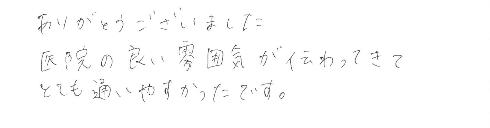 ありがとうございました
医院の良い雰囲気が伝わってきて
とても通いやすかったです。